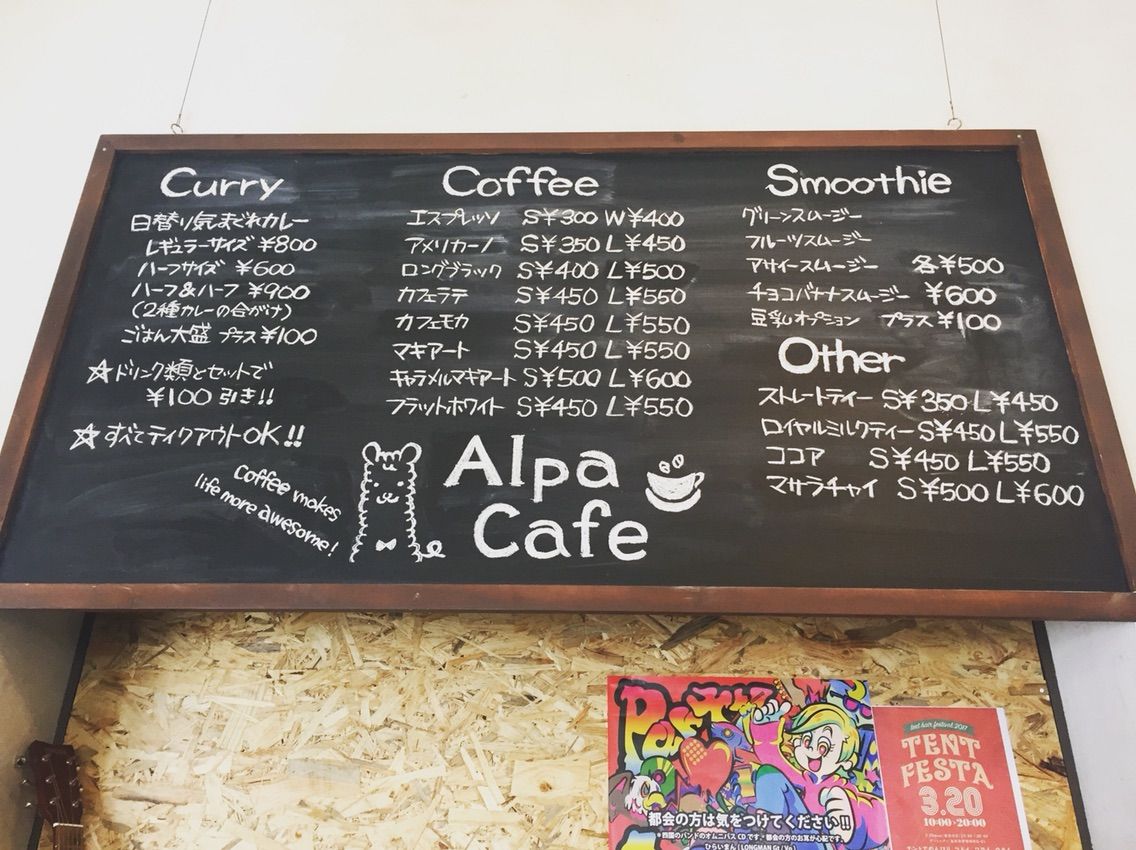 Curry
日替り気まぐれカレー
レギュラーサイズ ¥800
ハーフサイズ ¥600
ハーフ&ハーフ ¥900
(2種カレーの合がけ)
ごはん大盛 プラス¥100
☆ドリンク類とセットで
¥100 引き!!
☆すべてテイクアウトOK!!
Coffee
エスプレッソ S¥300 W¥400
アメリカーノ S¥350 L¥450
ロングブラック S¥400 L¥500
カフェラテ S¥450 L¥550
カフェモカ S¥450 L¥550
マキアート S¥450 L¥550
キャラメルマキアート S¥500 L¥600
フラットホワイト S¥450 L¥550
Smoothie
グリーンスムージー
フルーツスムージー
アサイースムージー 各¥500
チョコバナナスムージー ¥600
豆乳オプション プラス¥100
Other
ストレートティー S¥350 L¥450
ロイヤルミルクティー S¥450 L¥550
ココア S¥450 L¥550
マサラチャイ S¥500 L¥600
Coffee makes
life more awesome!
Alpa
Cafe
都会の方は気をつけてください!!
*四国のバンドのオムニバスCDです。都会の方のお耳が心配です。
ひらいまん (LONGMAN Gt / Vo)
tent hair festival 2017
TENT
FESTA
3.20
10:00-20:00